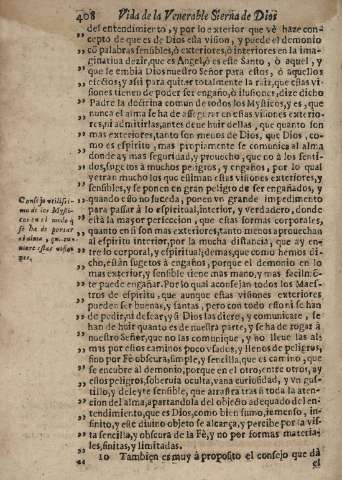 408 Vida de la Venerable Sierva de Dios
„ del entendimiento, y por lo exterior que vè haze con-
„ cepto que es de Dios esta vision, y puede el demonio
„ cõ palabras sensibles, ò exteriores, ò interiores en la ima-
„ ginativa dezir, que es Angel, ò es este Santo, ò aquel, y
„ que le embia Dios nuestro Señor para estos, ò aquellos
„ efectos; y assi para quitar totalmente la raiz, que estas vi-
„ siones tienen de poder ser engaño, ò ilusiones, dize dicho
„ Padre la doctrina comun de todos los Mysticos, y es, que
„ nunca el alma se ha de assegurar en estas visiones exterio-
„ res, ni admitirlas, antes deve huir dellas, que quanto son
„ mas exteriores, tanto son menos de Dios, que Dios, co-
„ mo es espiritu, mas propiamente se comunica al alma
„ donde ay mas seguridad, y provecho, que no à los senti-
„ dos, sugetos à muchos peligros, y engaños, por lo qual
„ yerran mucho los que estiman estas visiones exteriores, y
„ sensibles, y se ponen en gran peligro de ser engañados, y
„ quando esto no suceda, ponen vn grande impedimento
„ para passar à lo espiritual, interior, y verdadero, donde
„ està la mayor perfeccion, que estas formas corporales,
„ quanto en si son mas exteriores, tanto menos aprovechan
„ al espiritu interior, por la mucha distancia, que ay en-
„ tre lo corporal, y espiritual; demas, que como hemos di-
„ cho, están sugetos à engaños, porque el demonio en lo
„ mas exterior, y sensible tiene mas mano, y mas facilmẽ-
„ te puede engañar. Por lo qual aconsejan todos los Maes-
„ tros de espiritu, que aunque estas visiones exteriores
„ pueden ser buenas, y santas, pero con todo esso ni se han
„ de pedir, ni desear, y si Dios las diere, y comunicare, se
„ han de huir quanto es de nuestra parte, y se ha de rogar à
„ nuestro Señor, que no las comunique, y no lleve las al-
„ mas por estos caminos poco vsados, y llenos de peligros,
„ sino por Fè obscura, simple, y sencilla, que es camino, que
„ se encubre al demonio, porque en el otro, entre otros, ay
„ estos peligros, sobervia oculta, vana curiosidad, y vn gus-
„ tillo, y deleyte sensible, que arrastra tras si toda la aten-
„ cion del alma, apartandola del objecto adequado del en-
„ tendimiento, que es Dios, como bien sumo, inmenso, in-
„ finito, y este divino objeto se alcança, y percibe por la vis-
„ ta sencilla, y obscura de la Fè, y no por formas materia-
„ les, finitas, y limitadas.
„ 10 Tambien es muy à proposito el consejo que dà
el
Consejo vtilissi-
mo de los Mysti-
cos en el modo q̃
se ha de portar
el alma, quan-
estas visio-
nes.